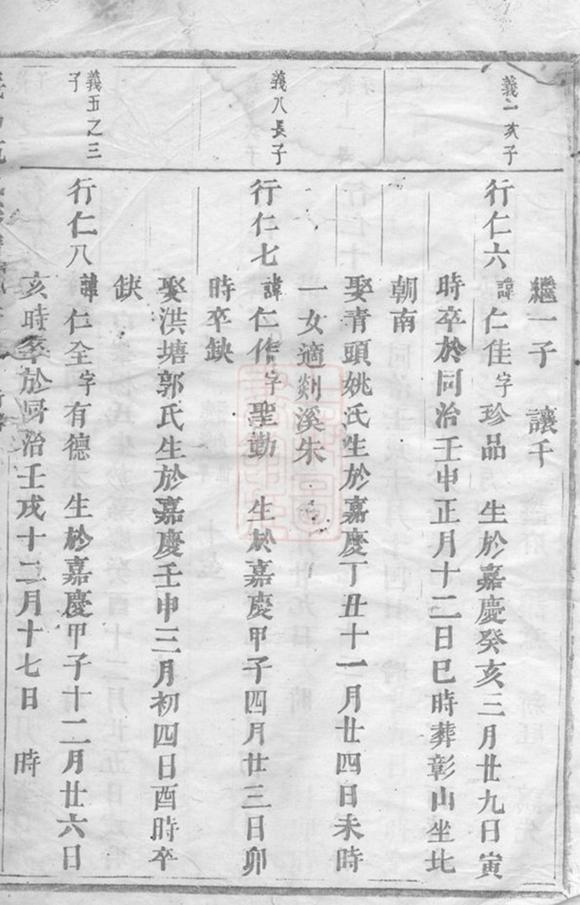 繼一子　讓千
義二亥子
行仁六諱仁佳字珍品　生於嘉慶癸亥三月廿九日寅
時卒於同治壬申正月十二日巳時葬彰山坐北
朝南
娶青頭姚氏生於嘉慶丁丑十一月廿四日未時
一女適剡溪朱
義八長子
行仁七諱仁作字聖勤　生於嘉慶甲子四月廿三日卯
時卒缺
娶洪塘郭氏生於嘉慶壬申三月初四日酉時卒
缺
義五之三子
行仁八諱仁全字有德　生於嘉慶甲子十二月廿六日
亥時卒於同治壬戌十二月十七日　時